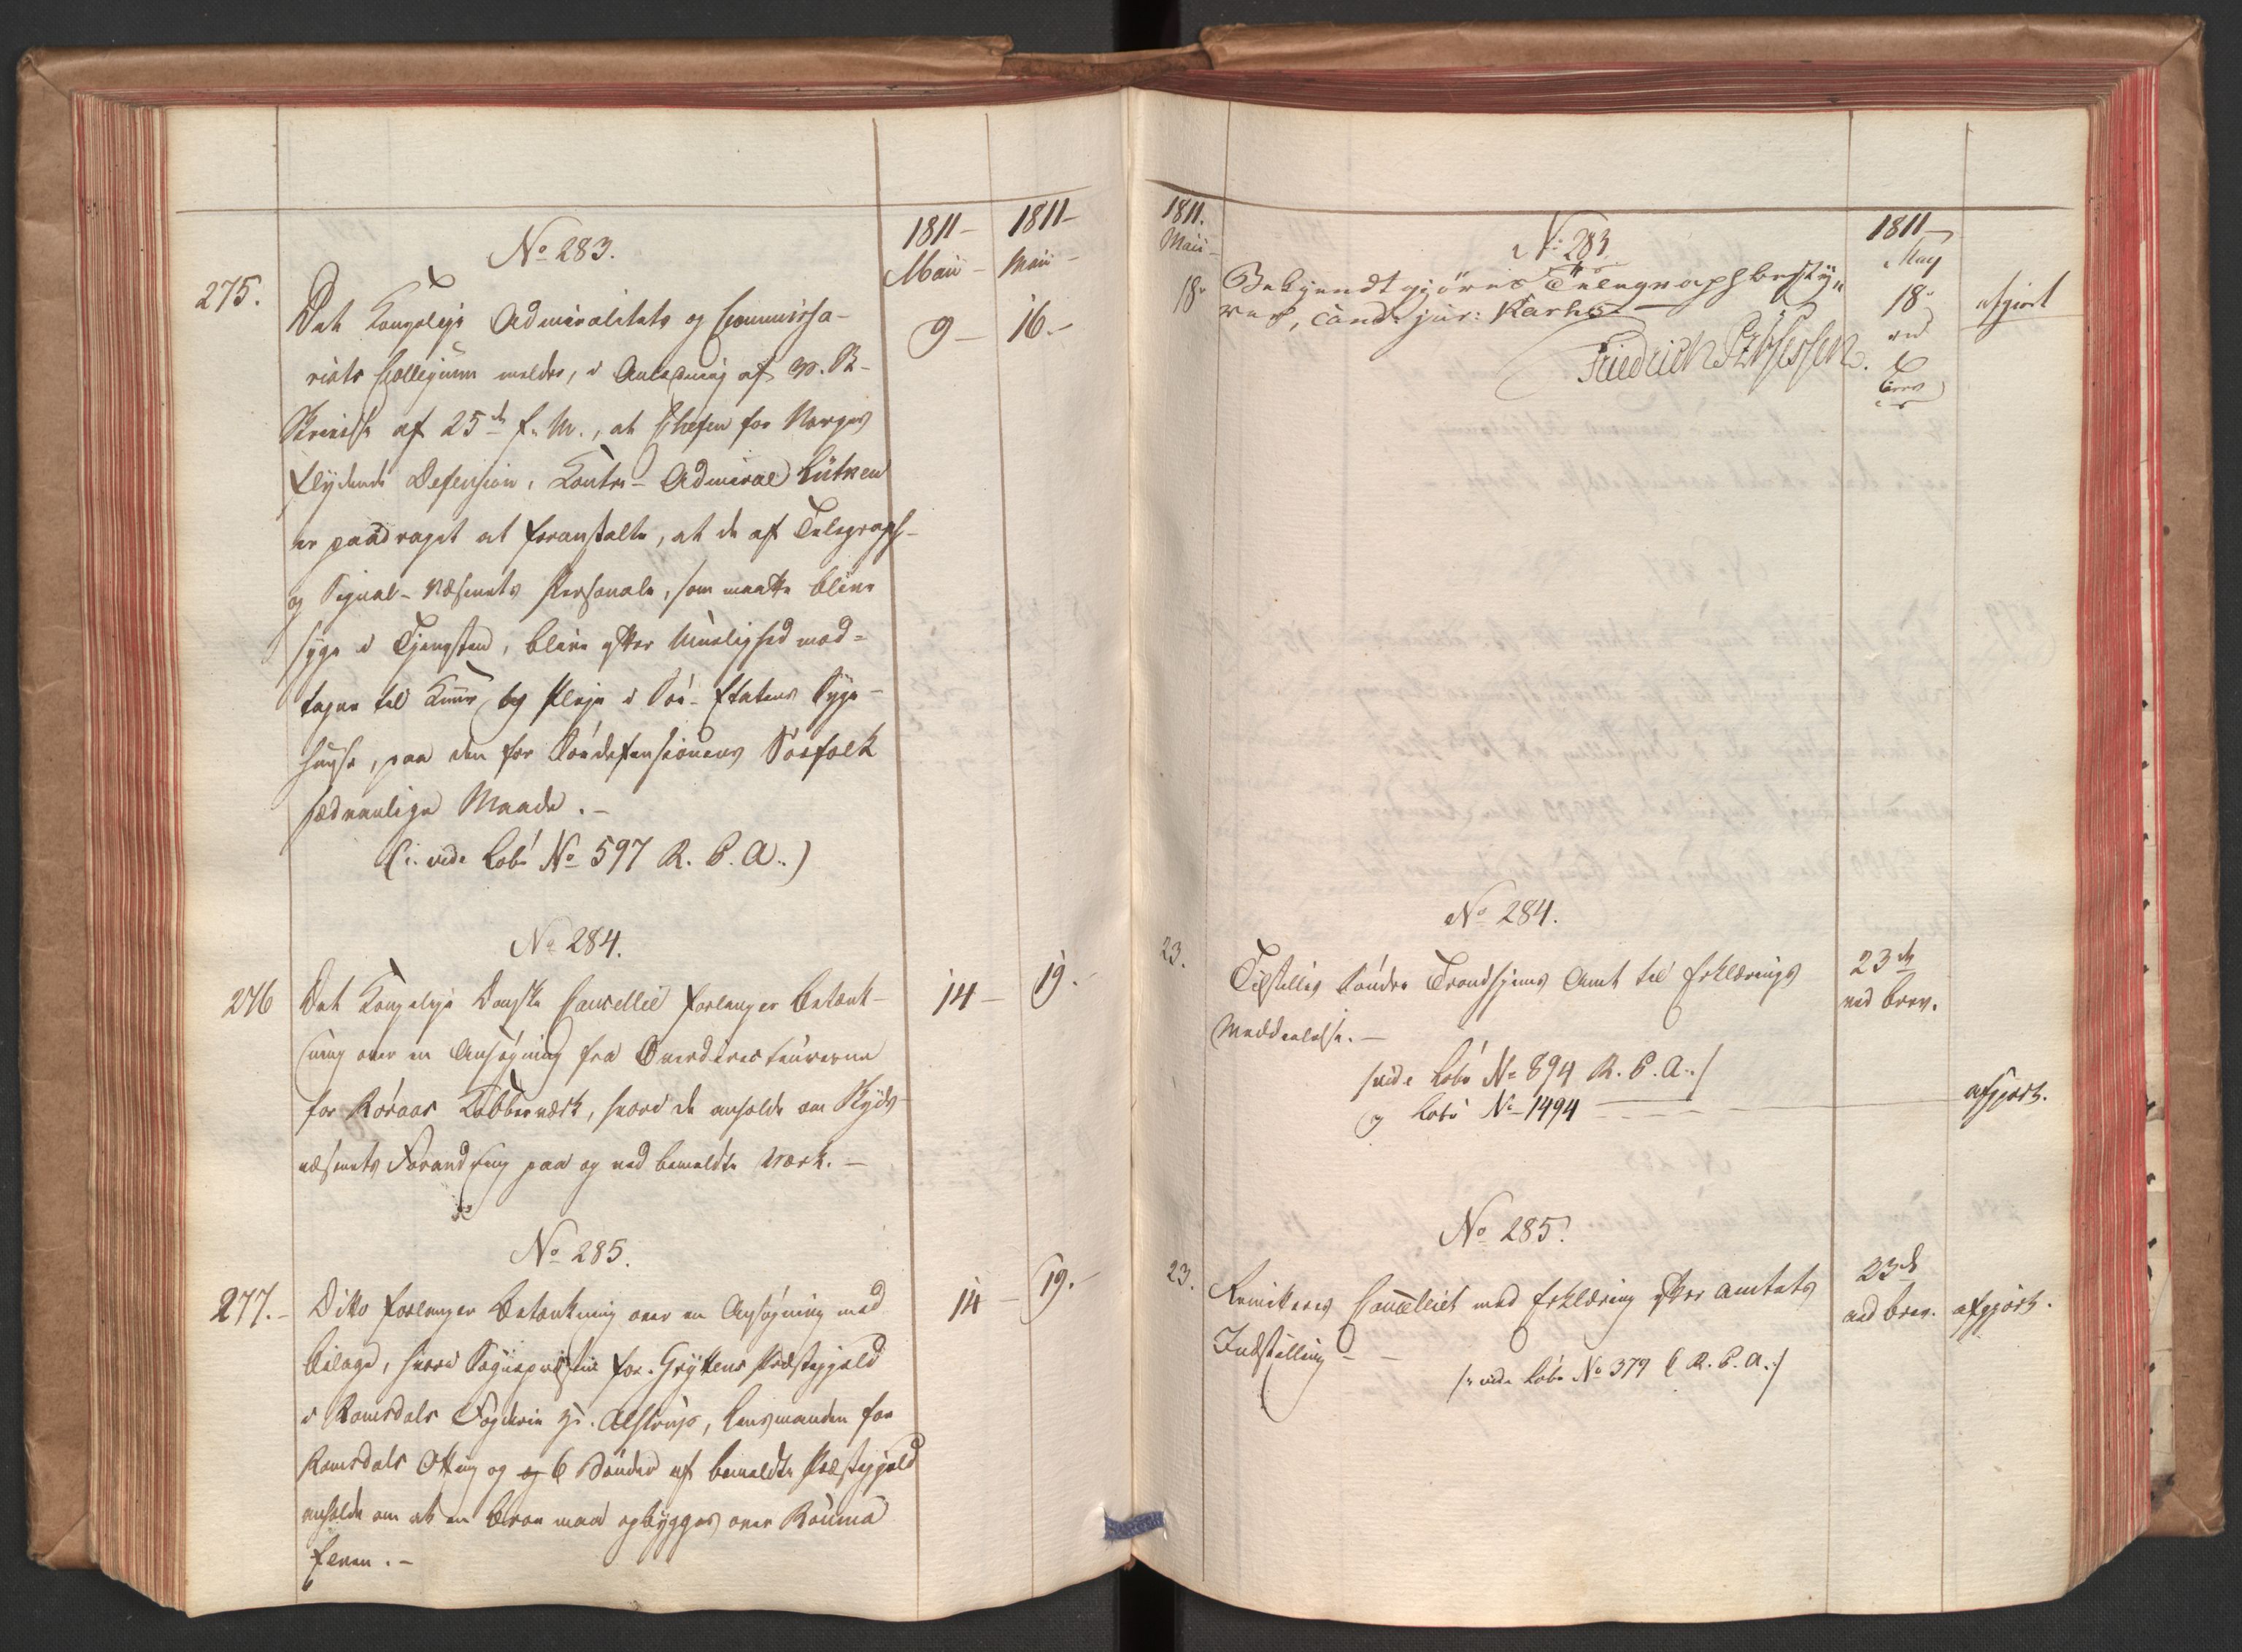 1811 –
1811 –
Maii –
Maii –
No 283.
275.
Det Kongelige Admiralitets og Commissa-
9 –
16. –
riats Collegium melder, i Anledning af
Skrivelse af 25de f. M., at Chefen for Norges
flydende Defension, Contre-Admiral Lütken
er paadraget at foranstalte, at de af Telegraph-
og Signal-Væsenets Personale, som maatte blive
syge i Tjenesten, blive efter Muelighed mod-
tagne til Kuur og Pleje i Søe-Etatens Syge-
huuse, paa den for Søedefensionens Søefolk
sædvanlige Maade. –
(: vide Lobe No 597 R. P. A. :)
No 284.
276
Det Kongelige Danske Cancellie forlanger Betænk-
14 –
19. –
ning over en Ansøgning fra Overdirecteurerne
for Röraas Kobberværk, hvori de anholde om Skyds-
væsenets Forandring paa og ved bemeldte Værk. –
No 285.
277. –
Ditto forlanger Betænkning over en Ansøgning med
14 –
19. –
Bilage, hvori Sognepræsten for Gryttens Præstegjeld
i Romsdals Fogderie Hr. Alstrup, Lensmanden for
Romsdals Otting og og 6 Bönder af bemeldte Præstegjeld
anholde om at en Broe maa opbygges over Rauma
Elven. –
1811.
Maii –
1811 –
May
No 283.
18.
Bekjendtgjöres Telegraphbesty-
18.
afgjort
rer, Cand: jur: Karhof –
ved
Friedrich
Brev
No 284.
23.
Tilstilles Söndre Trondhjems Amt til Erklærings
23de
ved Brev.
Meddelelse. –
/vide Lobe No 894 R. P. A. :/
og Lobe No 1494
afgjort.
No 285.
23.
Remitteres Cancelliet med Erklæring efter Amtets
23de
ved Brev.
afgjort.
Indstilling –
/: vide Lobe No 379 R. P. A. :/